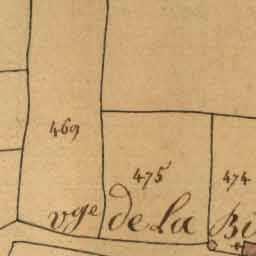 469
475
474
vge de la Bi